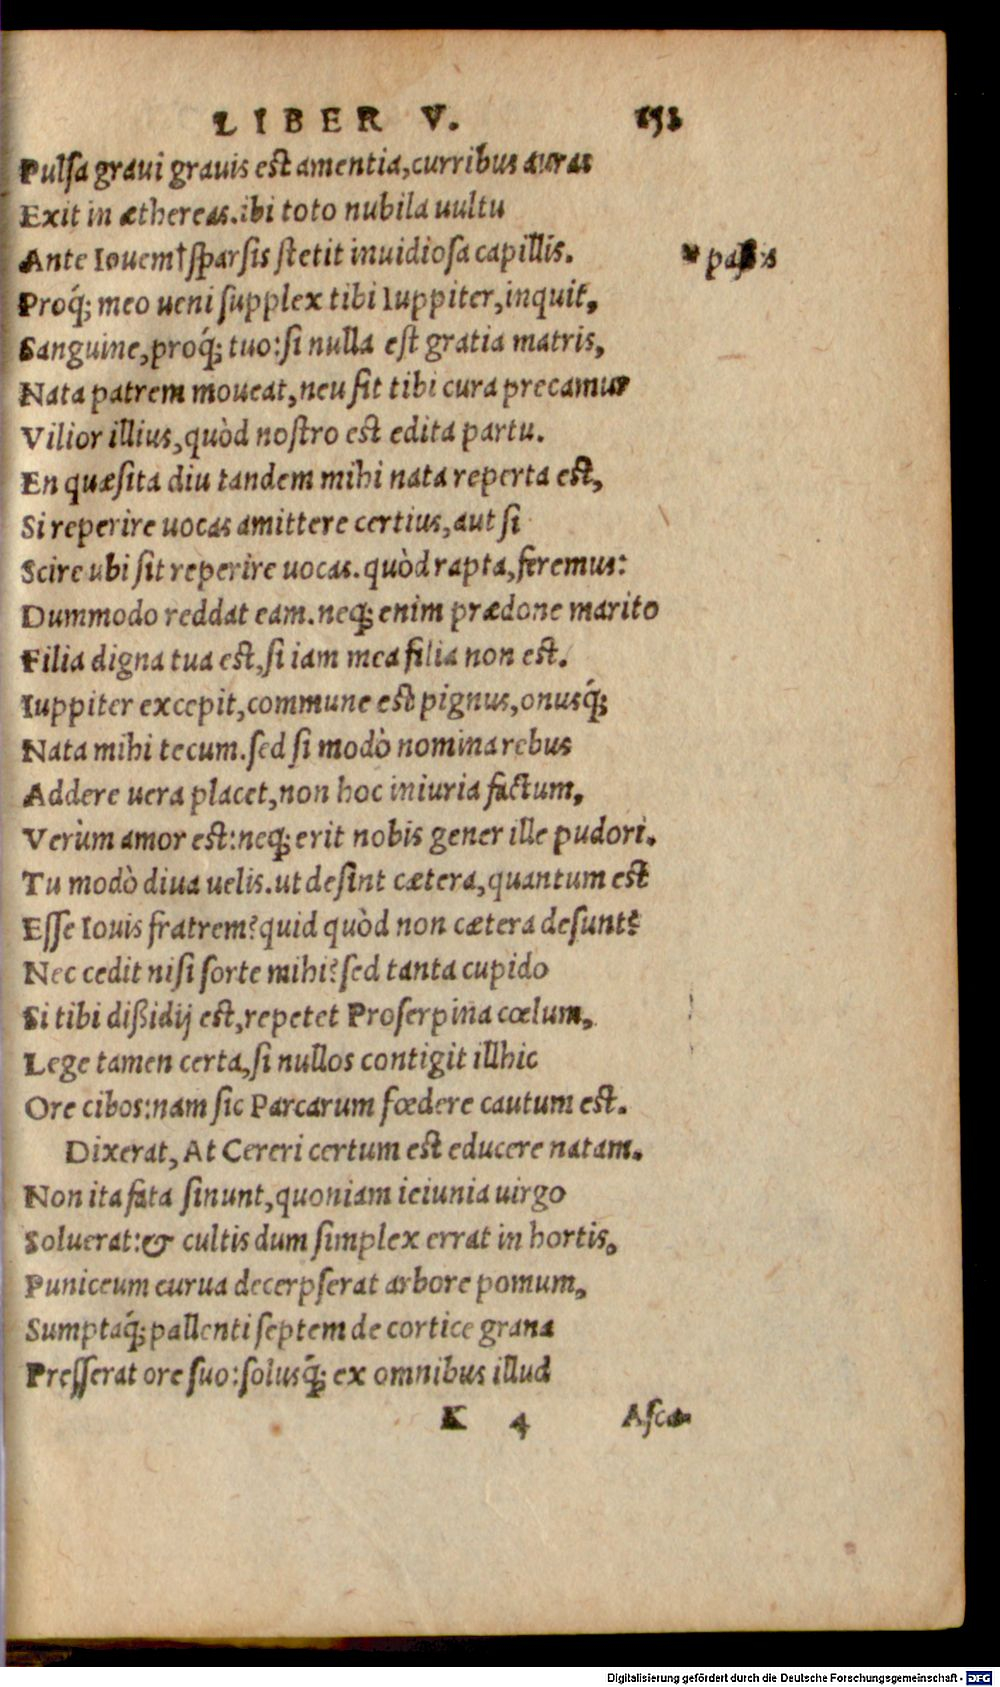 LIBER V.
Pulſa graui grauis est amentia, curribus auras
Exit in æthereas. ibi toto nubila uultu
Ante Iouem† ſparſis ſtetit inuidioſa capillis.
Proq́; meo ueni ſupplex tibi Iuppiter, inquit,
Sanguine, proq́; tuo: ſi nulla est gratia matris,
Nata patrem moueat, neu ſit tibi cura precamur
Vilior illius, quòd noſtro est edita partu.
En quæſita diu tandem mihi nata reperta est,
Si reperire uocas amittere certius, aut ſi
Scire ubi ſit reperire uocas. quòd rapta, feremus:
Dummodo reddat eam. neq; enim prædone marito
Filia digna tua est, ſi iam mea filia non est.
Iuppiter excepit, commune est pignus, onusq́;
Nata mihi tecum. ſed ſi modò nomina rebus
Addere uera placet, non hoc iniuria factum,
Verùm amor est: neq; erit nobis gener ille pudori.
Tu modò diua uelis. ut deſint cætera, quantum est
Eſſe Iouis fratrem? quid quòd non cætera deſunt?
Nec cedit niſi ſorte mihi? ſed tanta cupido
Si tibi dißidij est, repetet Proſerpina cœlum,
Lege tamen certa, ſi nullos contigit illhic
Ore cibos: nam ſic Parcarum fœdere cautum est.
Dixerat, At Cereri certum est educere natam.
Non ita fata ſinunt, quoniam ieiunia uirgo
Soluerat: & cultis dum ſimplex errat in hortis,
Puniceum curua decerpſerat arbore pomum,
Sumptaq́; pallenti ſeptem de cortice grana
Preſſerat ore ſuo: ſolusq́; ex omnibus illud
K 4 Aſca-
Digitalisierung gefördert durch die Deutsche Forschungsgemeinschaft - DFG